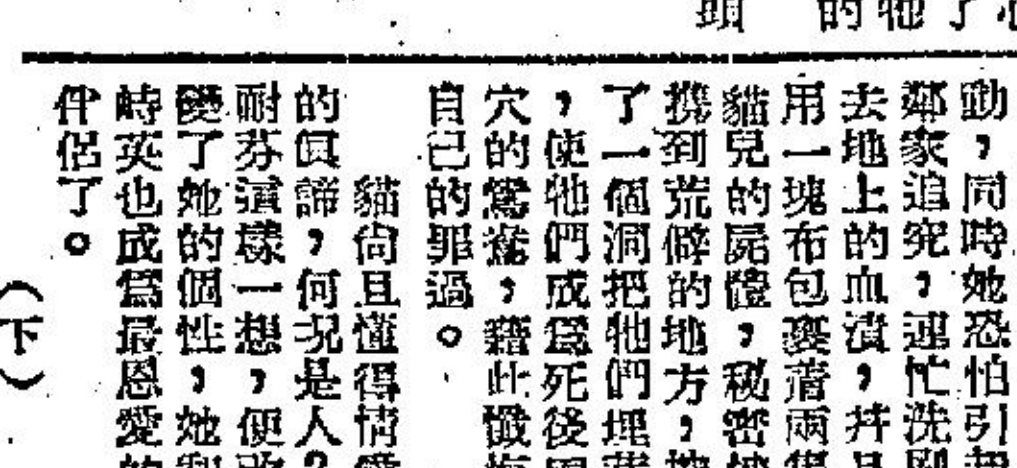 動，同時她恐怕引起
鄰家追究，連忙洗刷
去地上的血漬，并且
用一塊布包裹著兩隻
貓兒的屍體，秘密地
携到荒僻的地方，掘
了一個洞把牠們埋葬
，使牠們成爲死後同
穴的鴛鴦，藉此懺悔
自己的罪過。
貓尙且懂得情愛
的眞諦，何况是人？
耐芬這樣一想，便改
變了她的個性，她和
時英也成爲最恩愛的
伴侶了。
（下）